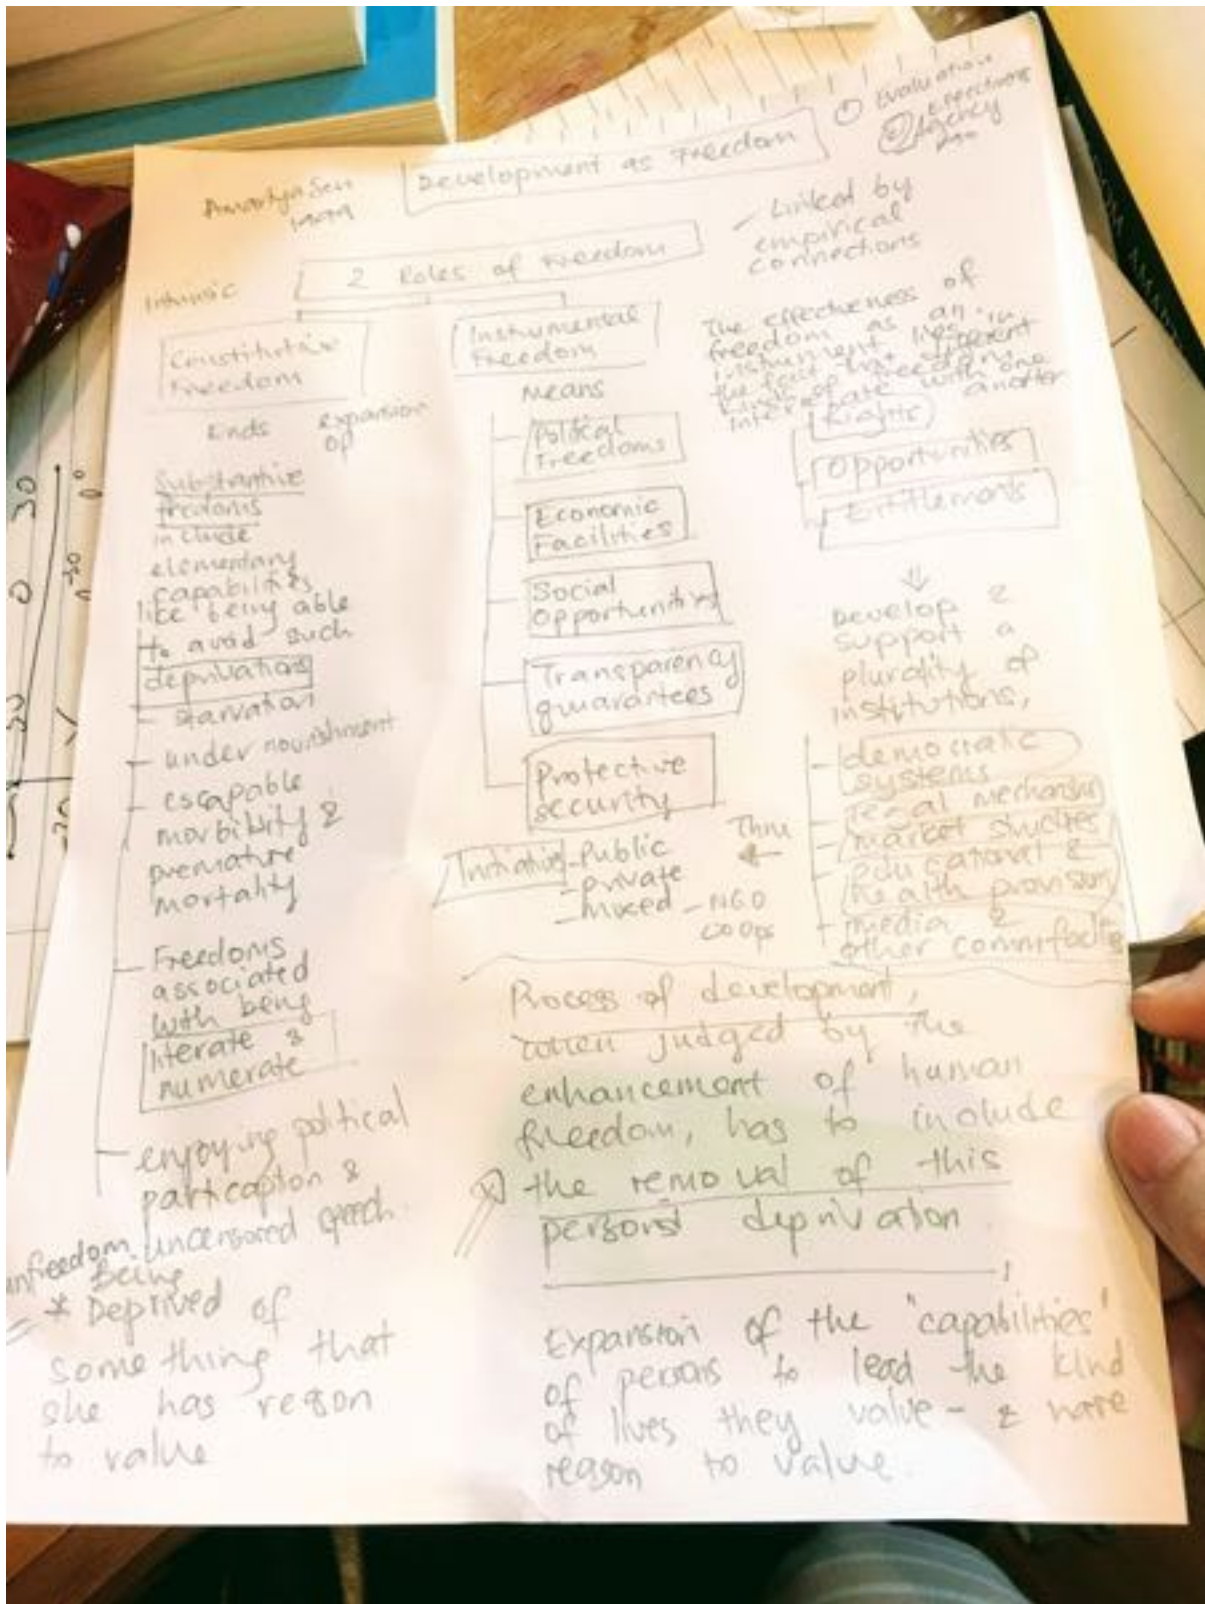 ① Evaluation
② Effectiveness
Agency
Amartya Sen
1999
Development as Freedom
2 Roles of Freedom
- Linked by
empirical
connections
Intrinsic
Constitutive
Freedom
Ends
expansion
of
Substantive
freedoms
include
elementary
capabilities
like being able
to avoid such
deprivations
- starvation
- under nourishment
- escapable
morbibity &
premature
mortality
- Freedoms
associated
with being
literate &
numerate
- enjoying political
particapton &
uncensored speech.
unfreedom
Being
* Deprived of
something that
she has reason
to value
Instrumental
Freedom
Means
Political
Freedoms
Economic
Facilities
Social
Opportunities
Transparency
guarantees
Protective
security
Initiatives - Public
- private
- mixed - NGO
coops
Thru
The effectiveness of
freedom as an
instrument lies in
the fact that different
kinds of freedom
interrelate with one
another
Rights
Opportunities
Entitlements
⇓
Develop &
support a
plurality of
institutions,
- democratic
systems
- legal mechanism
- market structures
- educational &
health provision
- media &
other comm facilities
Process of development,
when judged by the
enhancement of human
freedom, has to include
the removal of this
person's deprivation.
Expansion of the "capabilities"
of persons to lead the kind
of lives they value - & have
reason to value.
30
0